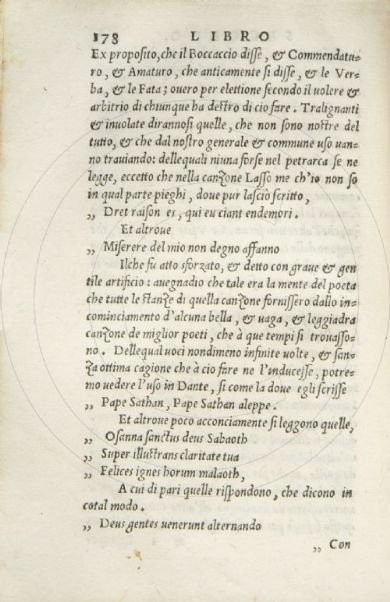 178 LIBRO
Ex proposito, che il Boccaccio disse, & Commendatu-
ro, & Amaturo, che anticamente si disse, & le Ver-
ba, & le Fata; ouero per elettione secondo il uolere &
arbitrio di chiunque ha destro di cio fare. Tralignanti
& inuolate dirannosi quelle, che non sono nostre del
tutto, & che dal nostro generale & commune uso uan-
no trauiando: dellequali niuna forse nel petrarca se ne
legge, eccetto che nella canzone Lasso me ch'io non so
in qual parte pieghi, doue pur lasciò scritto,
„ Dret raison es, qui eu ciant endemori.
Et altroue
„ Miserere del mio non degno affanno
Ilche fu atto sforzato, & detto con graue & gen
tile artificio: auegnadio che tale era la mente del poeta
che tutte le stanze di quella canzone fornissero dallo in-
cominciamento d'alcuna bella, & uaga, & leggiadra
canzone de miglior poeti, che à que tempi si trouasso-
no. Dellequal uoci nondimeno infinite uolte, & san-
za ottima cagione che à cio fare ne l'inducesse, potre-
mo uedere l'uso in Dante, si come la doue egli scrisse
„ Pape Sathan, Pape Sathan aleppe.
Et altroue poco acconciamente si leggono quelle,
„ Osanna sanctus deus Sabaoth
„ Super illustrans claritate tua
„ Felices ignes horum malaoth,
A cui di pari quelle rispondono, che dicono in
cotal modo.
„ Deus gentes uenerunt alternando
„ Con